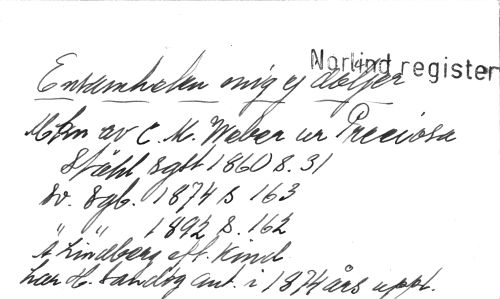 Norlind register
Ensamheten mig ej döljer
Mln av C. M. Weber ur Preciosa
Ståhl sglt 1860 s. 31
Sv. sgb. 1874 s 163
" " 1892 s. 162
A Lindberg eft. Kind
har H. Sandbg ant. i 1874 års uppl.